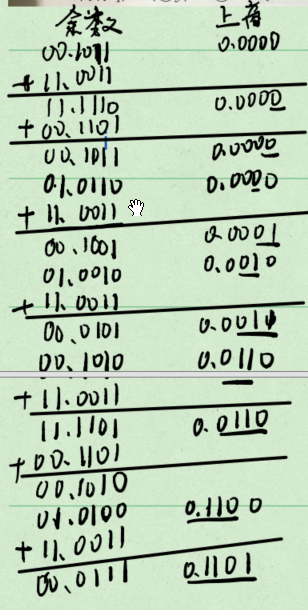 余数 上商
00.1011 0.0000
+ 11.0011
11.1110 0.0000
+ 00.1101
00.1011 0.0000
01.0110 0.0000
+ 11.0011
00.1001 0.0001
01.0010 0.0010
+ 11.0011
00.0101 0.0011
00.1010 0.0110
+ 11.0011
11.1101 0.0110
+ 00.1101
00.1010
01.0100 0.1100
+ 11.0011
00.0111 0.1101